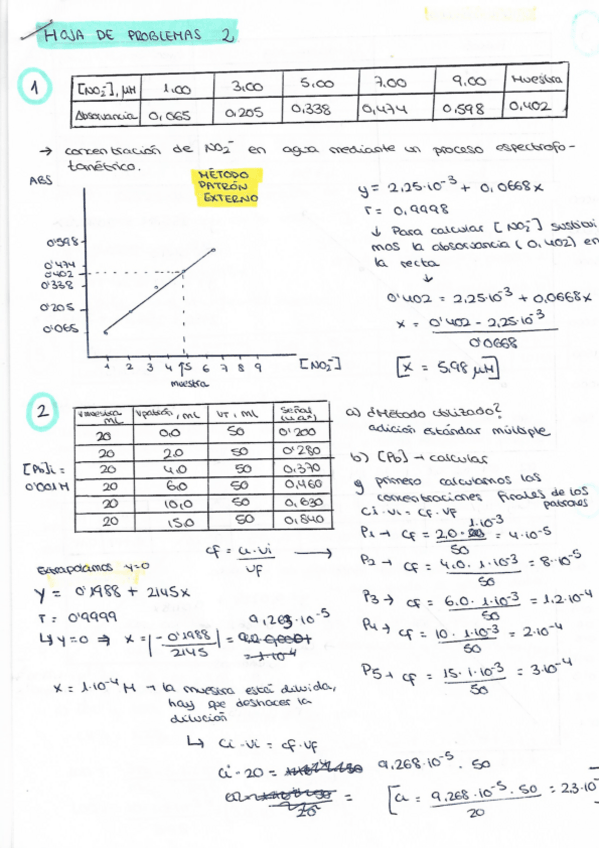 HOJA DE PROBLEMAS 2
1
[NO2⁻], µM 1,00 3,00 5,00 7,00 9,00 Muestra
Absorvancia 0,065 0,205 0,338 0,474 0,598 0,402
→ concentración de NO2⁻ en agua mediante un proceso espectrofo-
tométrico.
ABS
MÉTODO
PATRÓN
EXTERNO
0'598
0'474
0'402
0'338
0'205
0'065
1 2 3 4 5 6 7 8 9 [NO2⁻]
muestra
y = 2,25·10⁻³ + 0,0668x
r = 0,9998
↓ Para calcular [NO2⁻] sustitui
mos la absorvancia (0,402) en
la recta
↓
0'402 = 2,25·10⁻³ + 0,0668x
x = 0'402 - 2,25·10⁻³
0'0668
[x = 5,98 µM]
2
Vmuestra mL Vpatrón, mL VT, mL Señal
20 0,0 50 0'200
20 2,0 50 0'280
20 4,0 50 0,370
20 6,0 50 0,460
20 10,0 50 0,630
20 15,0 50 0,840
[Pb]i =
0'001M
cf = ci·vi / vf →
a) ¿Método utilizado?
adición estándar múltiple
b) [Pb] → calcular
y primero calculamos las
concentraciones finales de los
patrones
Ci·vi = Cf·Vf
P1 → cf = 2,0·1·10⁻³ / 50 = 4·10⁻⁵
P2 → cf = 4,0·1·10⁻³ / 50 = 8·10⁻⁵
P3 → cf = 6,0·1·10⁻³ / 50 = 1,2·10⁻⁴
P4 → cf = 10·1·10⁻³ / 50 = 2·10⁻⁴
P5 → cf = 15·1·10⁻³ / 50 = 3·10⁻⁴
Extrapolamos y=0
y = 0'1988 + 2145x
r = 0'9999
↳ y=0 ⇒ x = |-0'1988 / 2145| = 9,263·10⁻⁵
= 1·10⁻⁴
x = 1·10⁻⁴ M → la muestra está diluida,
hay que deshacer la
dilución
↳ Ci·vi = cf·vf
ci·20 = 9,268·10⁻⁵ · 50
= [ci = 9,268·10⁻⁵ · 50 / 20 = 2,3·10